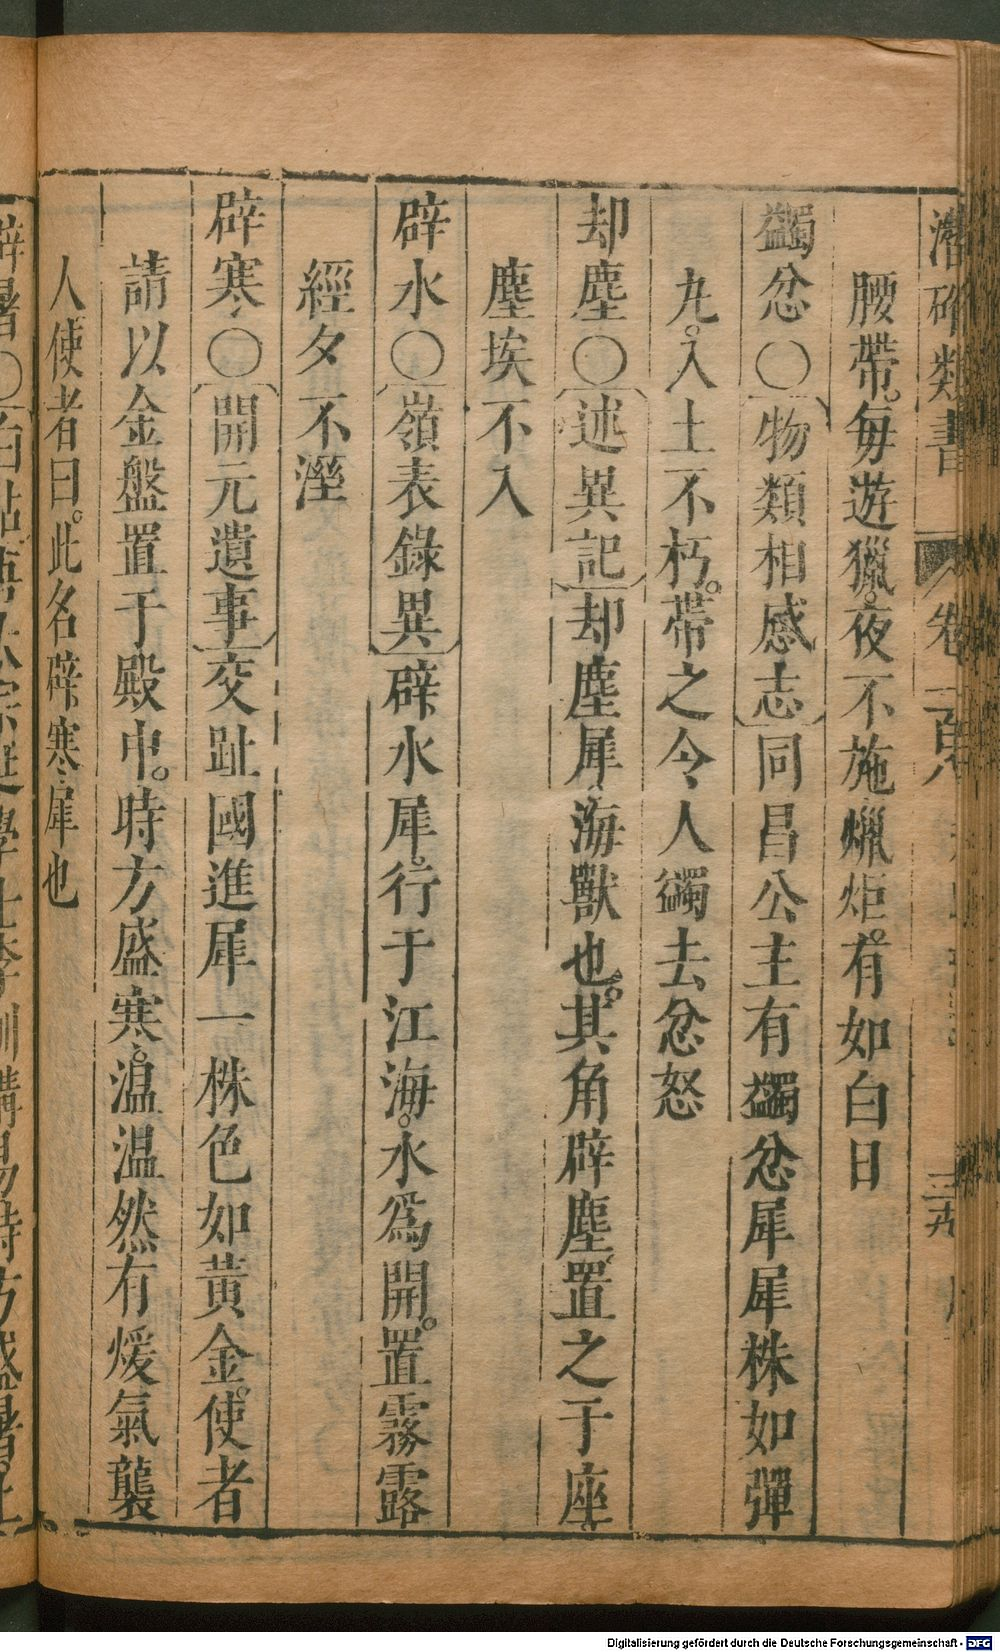 潛确類書 卷一百八
腰帶。每遊獵。夜不施爉炬。有如白日
蠲忿○物類相感志同昌公主有蠲忿犀犀株如彈
丸。入土不朽。帶之令人蠲去忿怒
却塵○述異記却塵犀、海獸也。其角辟塵、置之于座
塵埃不入
辟水○嶺表錄異辟水犀。行于江海。水爲開。置霧露
經夕不溼
辟寒○開元遺事交趾國進犀一株色如黃金。使者
請以金盤置于殿中。時方盛寒。溫溫然有煖氣襲
人使者曰。此名辟寒犀也
Digitalisierung gefördert durch die Deutsche Forschungsgemeinschaft - DFG